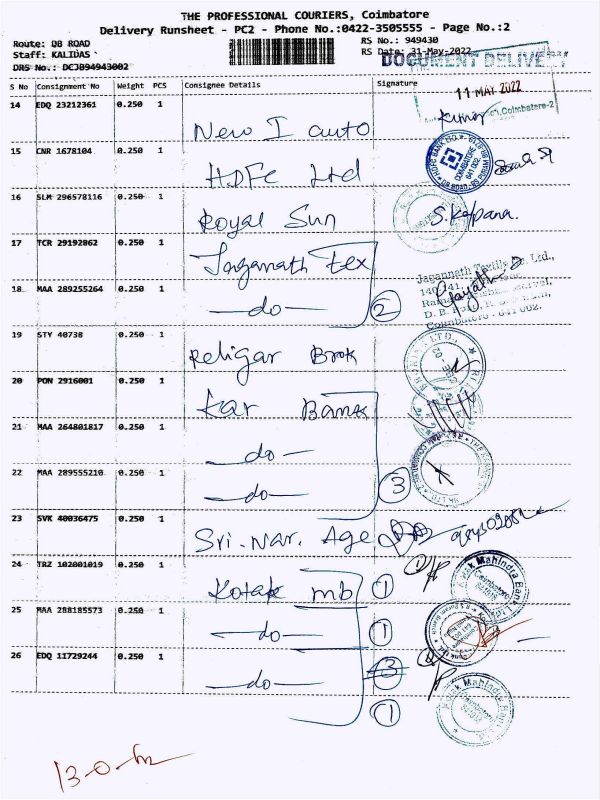 THE PROFESSIONAL COURIERS, Coimbatore
Delivery Runsheet - PC2 - Phone No.:0422-3505555 - Page No.:2
Route: DB ROAD
RS No.: 949430
Staff: KALIDAS
RS Date: 31-May-2022
DRS No.: DCJB94943002
DOCUMENT DELIVE
S No Consignment No Weight PCS Consignee Details Signature
11 MAY 2022
14 EDQ 23212361 0.250 1 New I auto Kumar
Coimbatore-2
15 CNR 1678104 0.250 1 HDFC Ltd
16 SLM 296578116 0.250 1 Royal Sun S. Kalpana.
17 TCR 29192862 0.250 1 Jagannath Tex
Jagannath Textile Co. Ltd.,
18 MAA 289255264 0.250 1 —do— 2
Coimbatore - 641 002.
19 STY 40738 0.250 1 Religar Brok
20 PON 2916001 0.250 1 Kar Bank
21 MAA 264801817 0.250 1 —do—
22 MAA 289555210 0.250 1 —do— 3
23 SVK 40036475 0.250 1 Sri. Nar. Age
24 TRZ 102001019 0.250 1 Kotak mb 1
Mahindra Bank Ltd
25 MAA 288185573 0.250 1 —do— 1
26 EDQ 11729244 0.250 1 —do— 3
1
Kotak Mahindra Bank Ltd